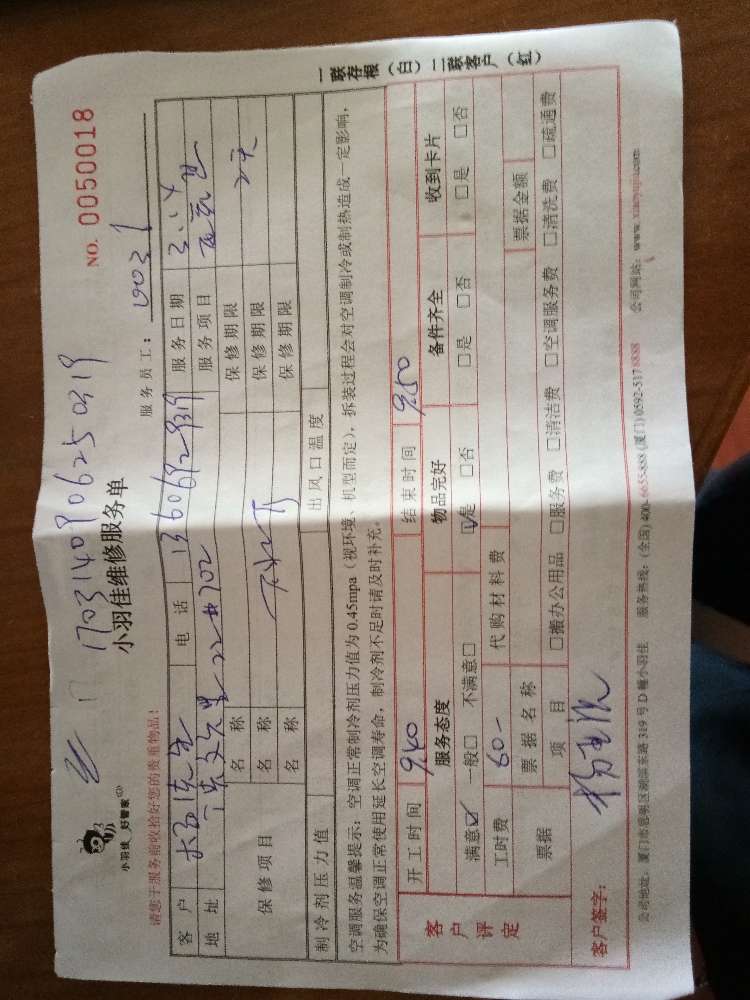 17031409062500419
NO. 0050018
小羽佳 好管家
小羽佳维修服务单
请您于服务前收拾好您的贵重物品!
服务员工:
客户 电话 服务日期
地址 服务项目
保修项目 名称 保修期限 2天
名称 保修期限
名称 保修期限
制冷剂压力值 出风口温度
空调服务温馨提示:空调正常制冷剂压力值为0.45mpa(视环境、机型而定),拆装过程会对空调制冷或制热造成一定影响,
为确保空调正常使用延长空调寿命,制冷剂不足时请及时补充。
客户评定
开工时间 9:40 结束时间 9:50
服务态度 物品完好 备件齐全 收到卡片
满意☑ 一般□ 不满意□ ☑是 □否 □是 □否 □是 □否
工时费 60- 代购材料费
票据 票据名称 票据金额
项目 □搬办公用品 □服务费 □清洁费 □空调服务费 □清洗费 □疏通费
客户签字:
公司地址:厦门市思明区湖滨东路319号D幢小羽佳 服务热线:(全国)400-6655-888 (厦门)0592-5178888 公司网站:
一联存根(白)二联客户(红)